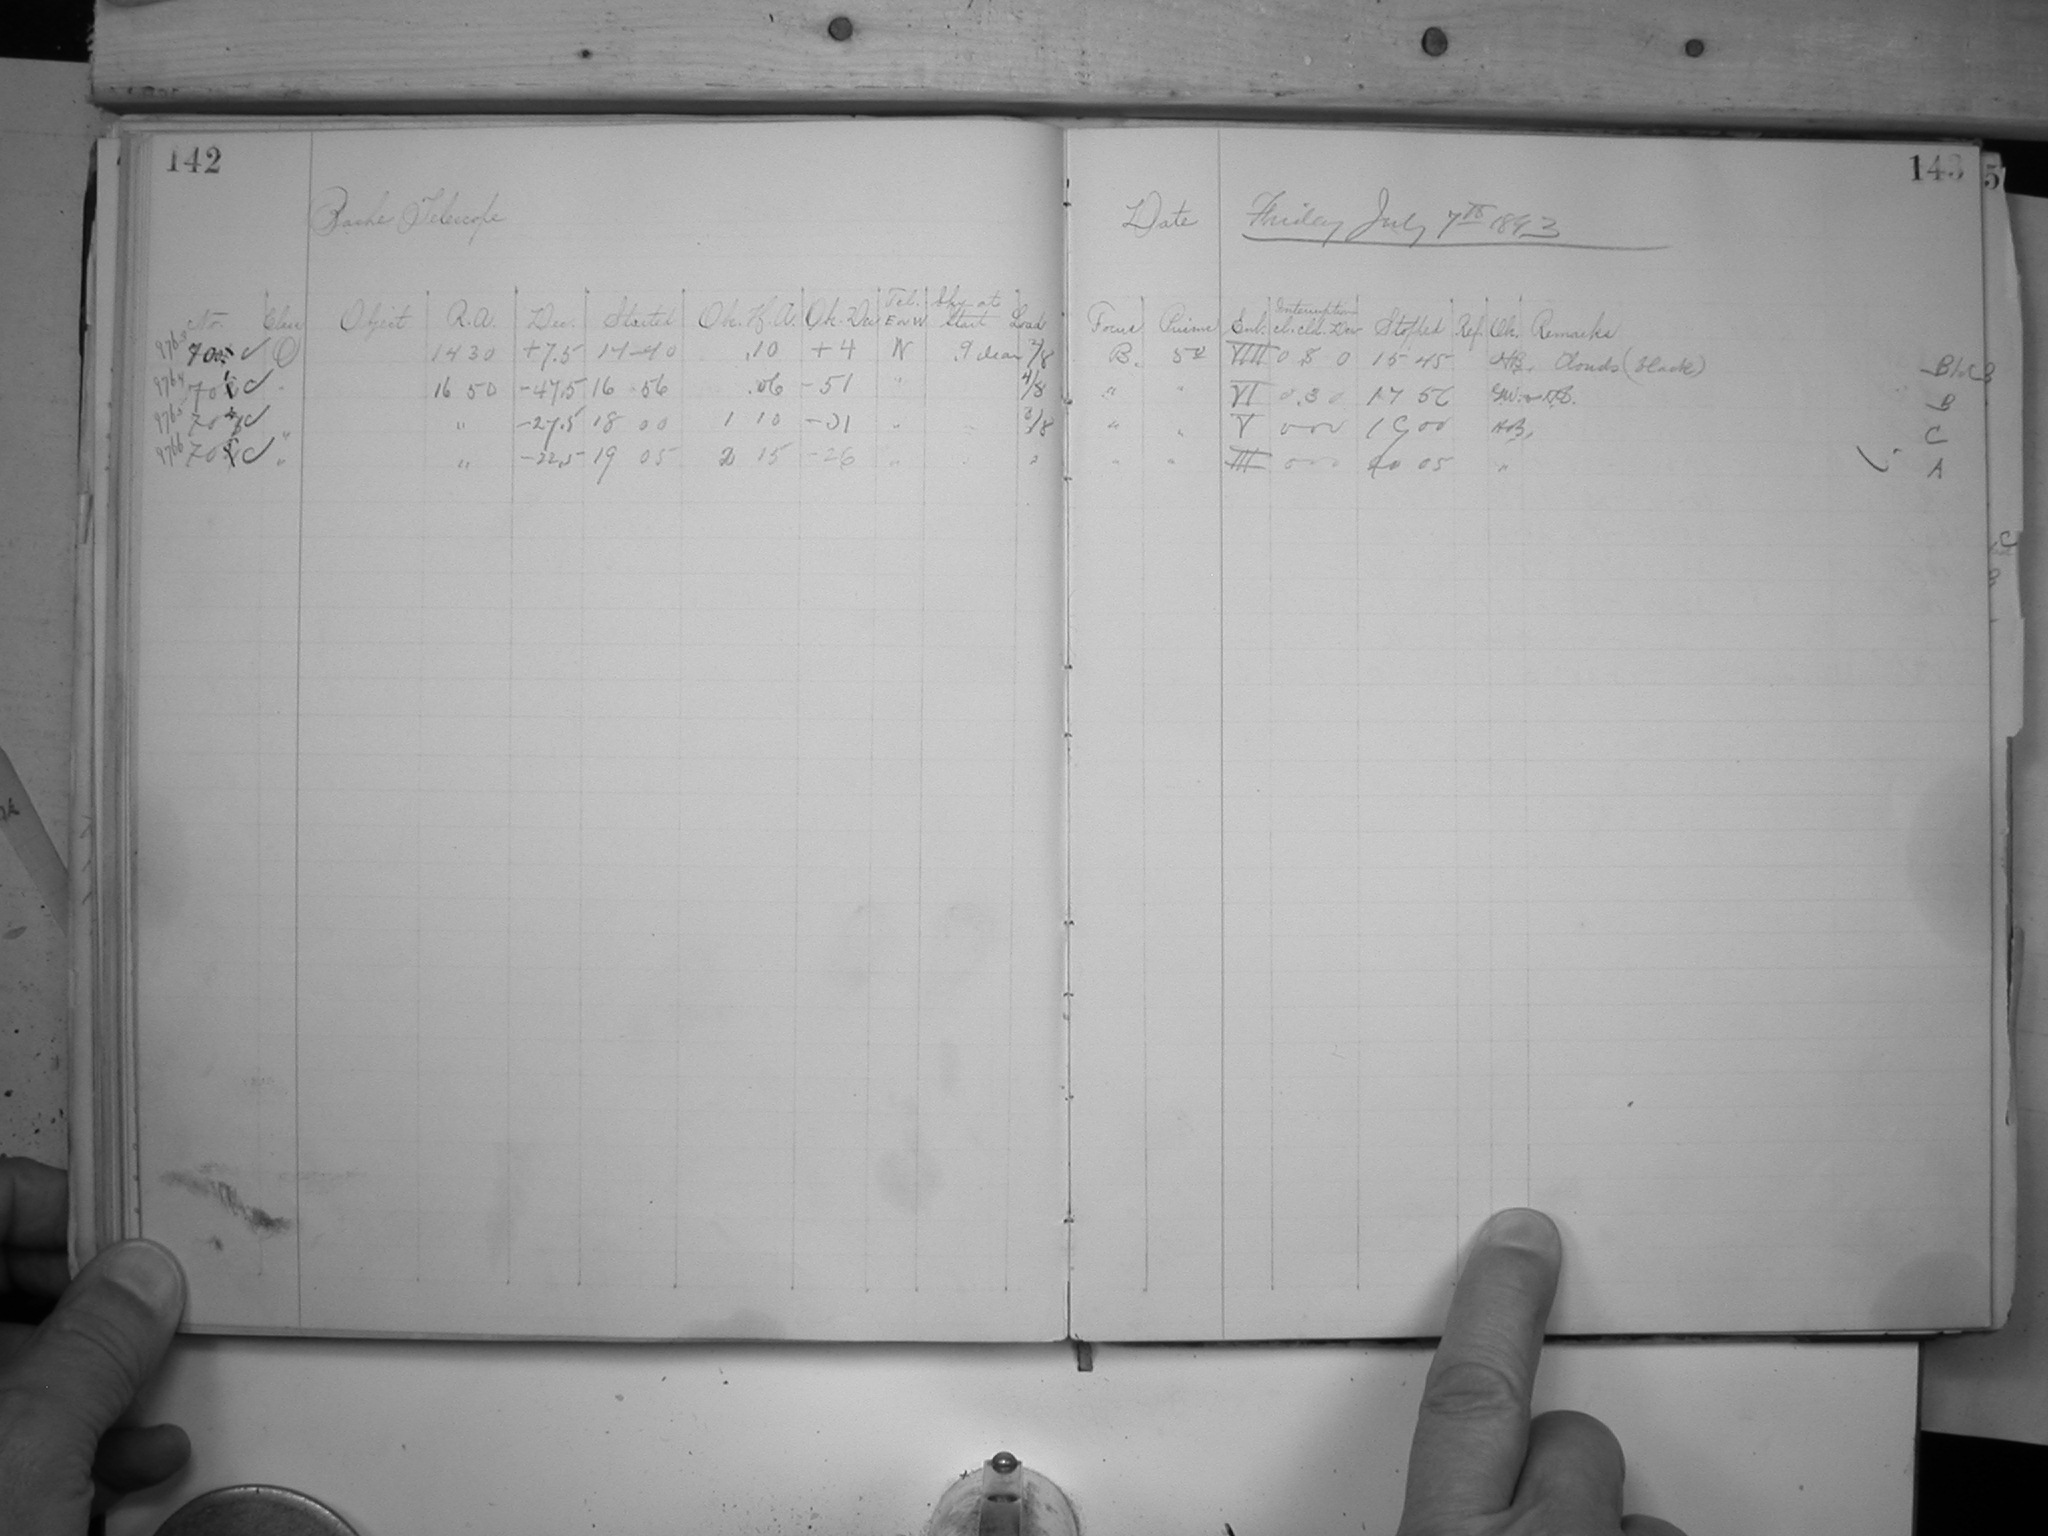 142
Bache Telescope
No. Class Object R.A. Dec. Started Ob. H.A. Ob. Dec Tel. E or W Sky at Start Load
9763 C 14 30 +7.5 14 40 .10 +4 W .9 clear 7/8
9764 C " 16 50 -47.5 16 56 .06 -51 " 4/8
9765 C " " -27.5 18 00 1 10 -31 " 3/8
9766 C " " -22.5 19 05 2 15 -26 " "
143
Date Friday July 7th 1893
Focus Prism Emb. Interruptions cl. cld. Dev Stopped Ref. Ob. Remarks
B. VIII 0 5 0 15 45 H.B. Clouds (black)
" " VI 0 3 0 17 56 B
" " V 0 0 0 19 00 H.B. C
" " III 0 0 0 20 05 " A